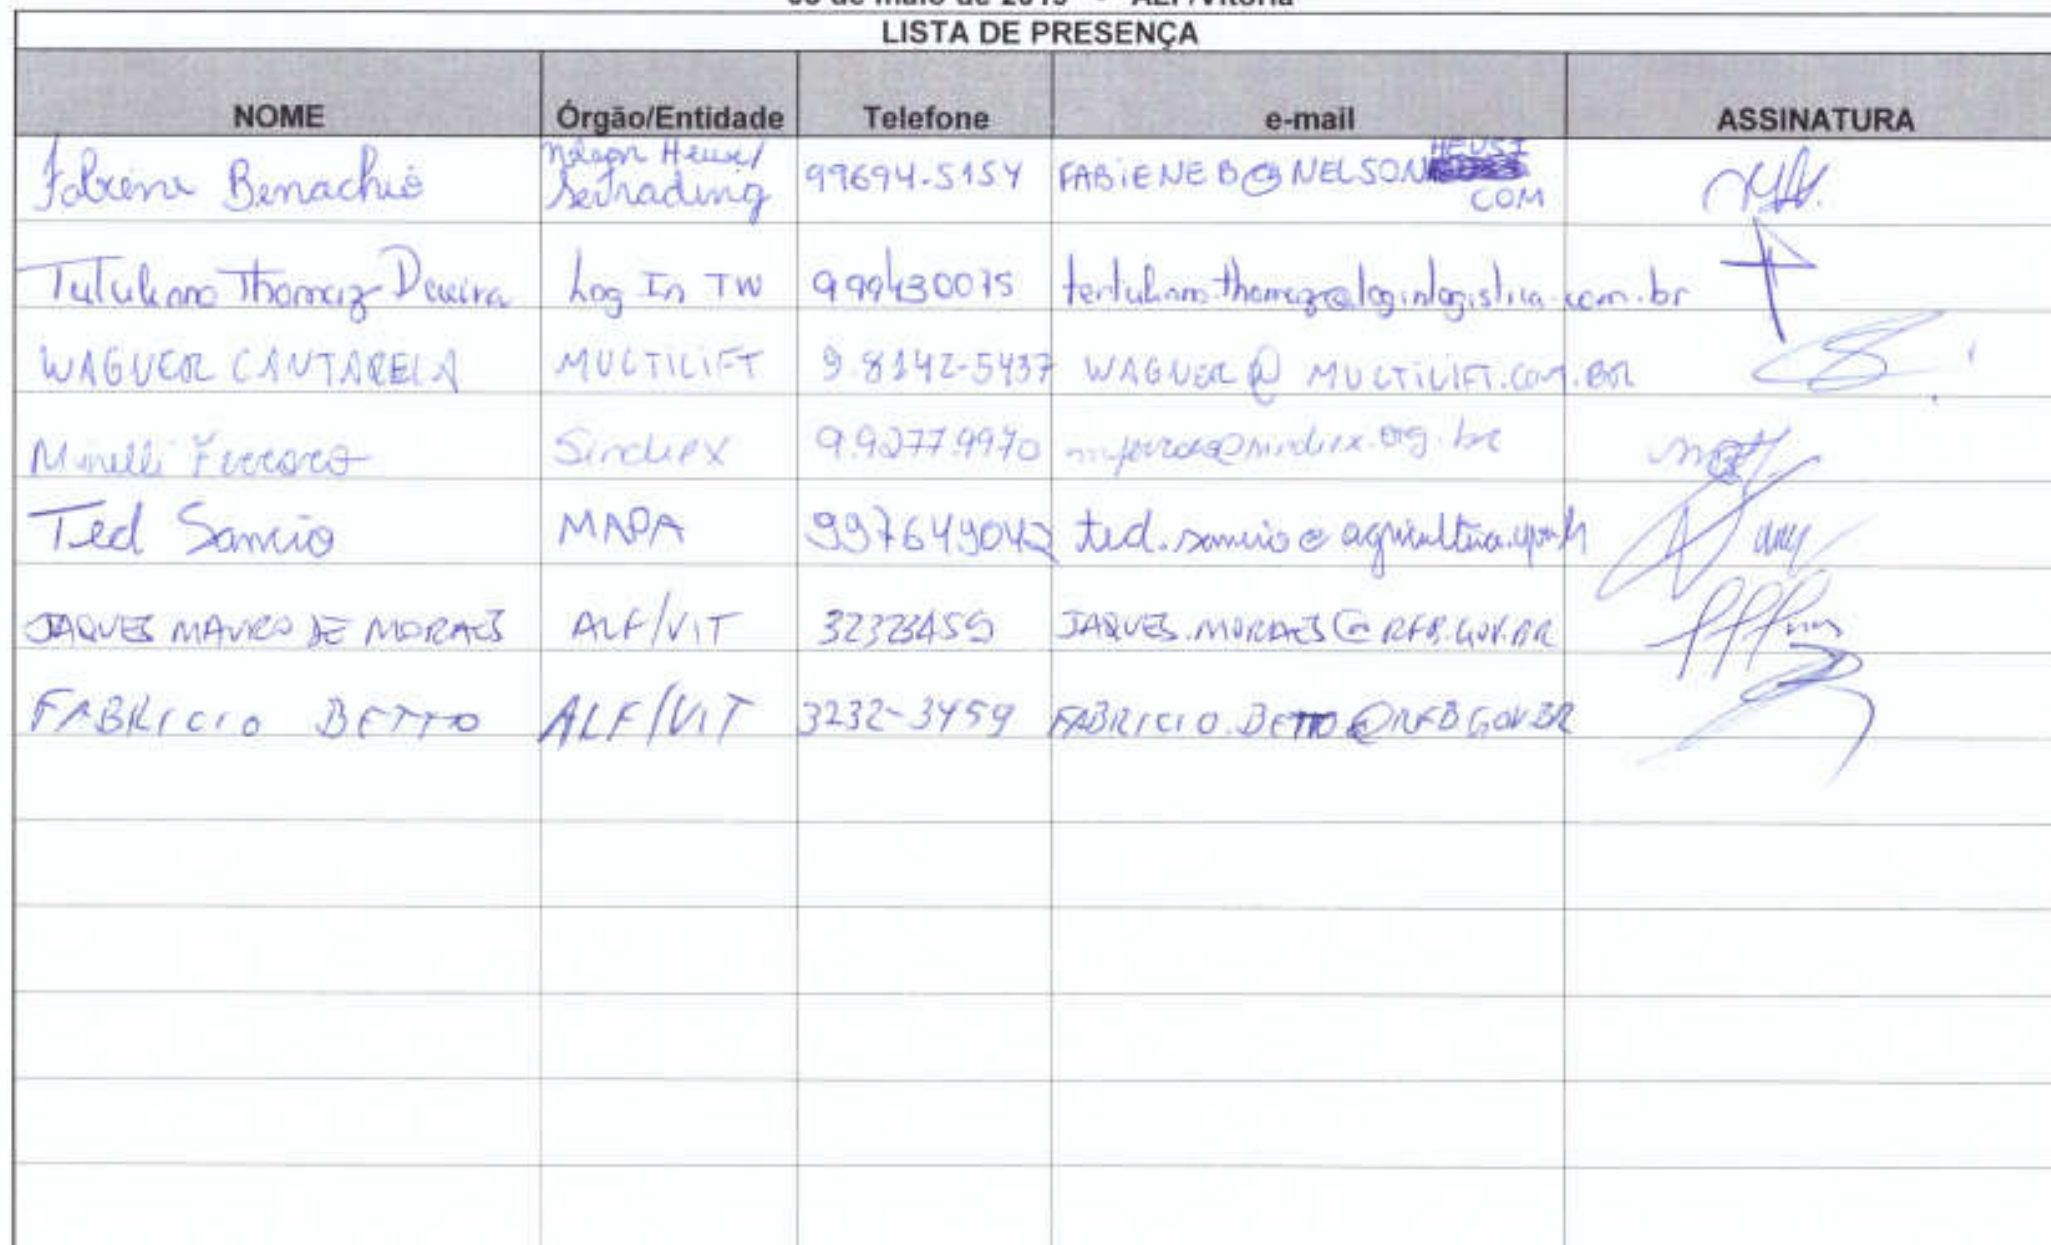 LISTA DE PRESENÇA
NOME Órgão/Entidade Telefone e-mail ASSINATURA
Fabiene Benachio Nelson Heusi/ Setrading 99694-5154 FABIENEB@NELSONHEUSI COM
Thomaz Log In TW tertuliano.thomaz@loginlogistica.com.br
WAGNER CANTARELA MULTILIFT 9.8142-5437 WAGNER@MULTILIFT.COM.BR
Minelli Sindiex 9.92779970
Ted Sancio MAPA 997649042 ted.sancio@agricultura.gov.br
JAQUES MAURO DE MORAES ALF/VIT 32323459 JAQUES.MORAES@RFB.GOV.BR
FABRICIO BETTO ALF/VIT 3232-3459 FABRICIO.BETTO@RFB.GOV.BR